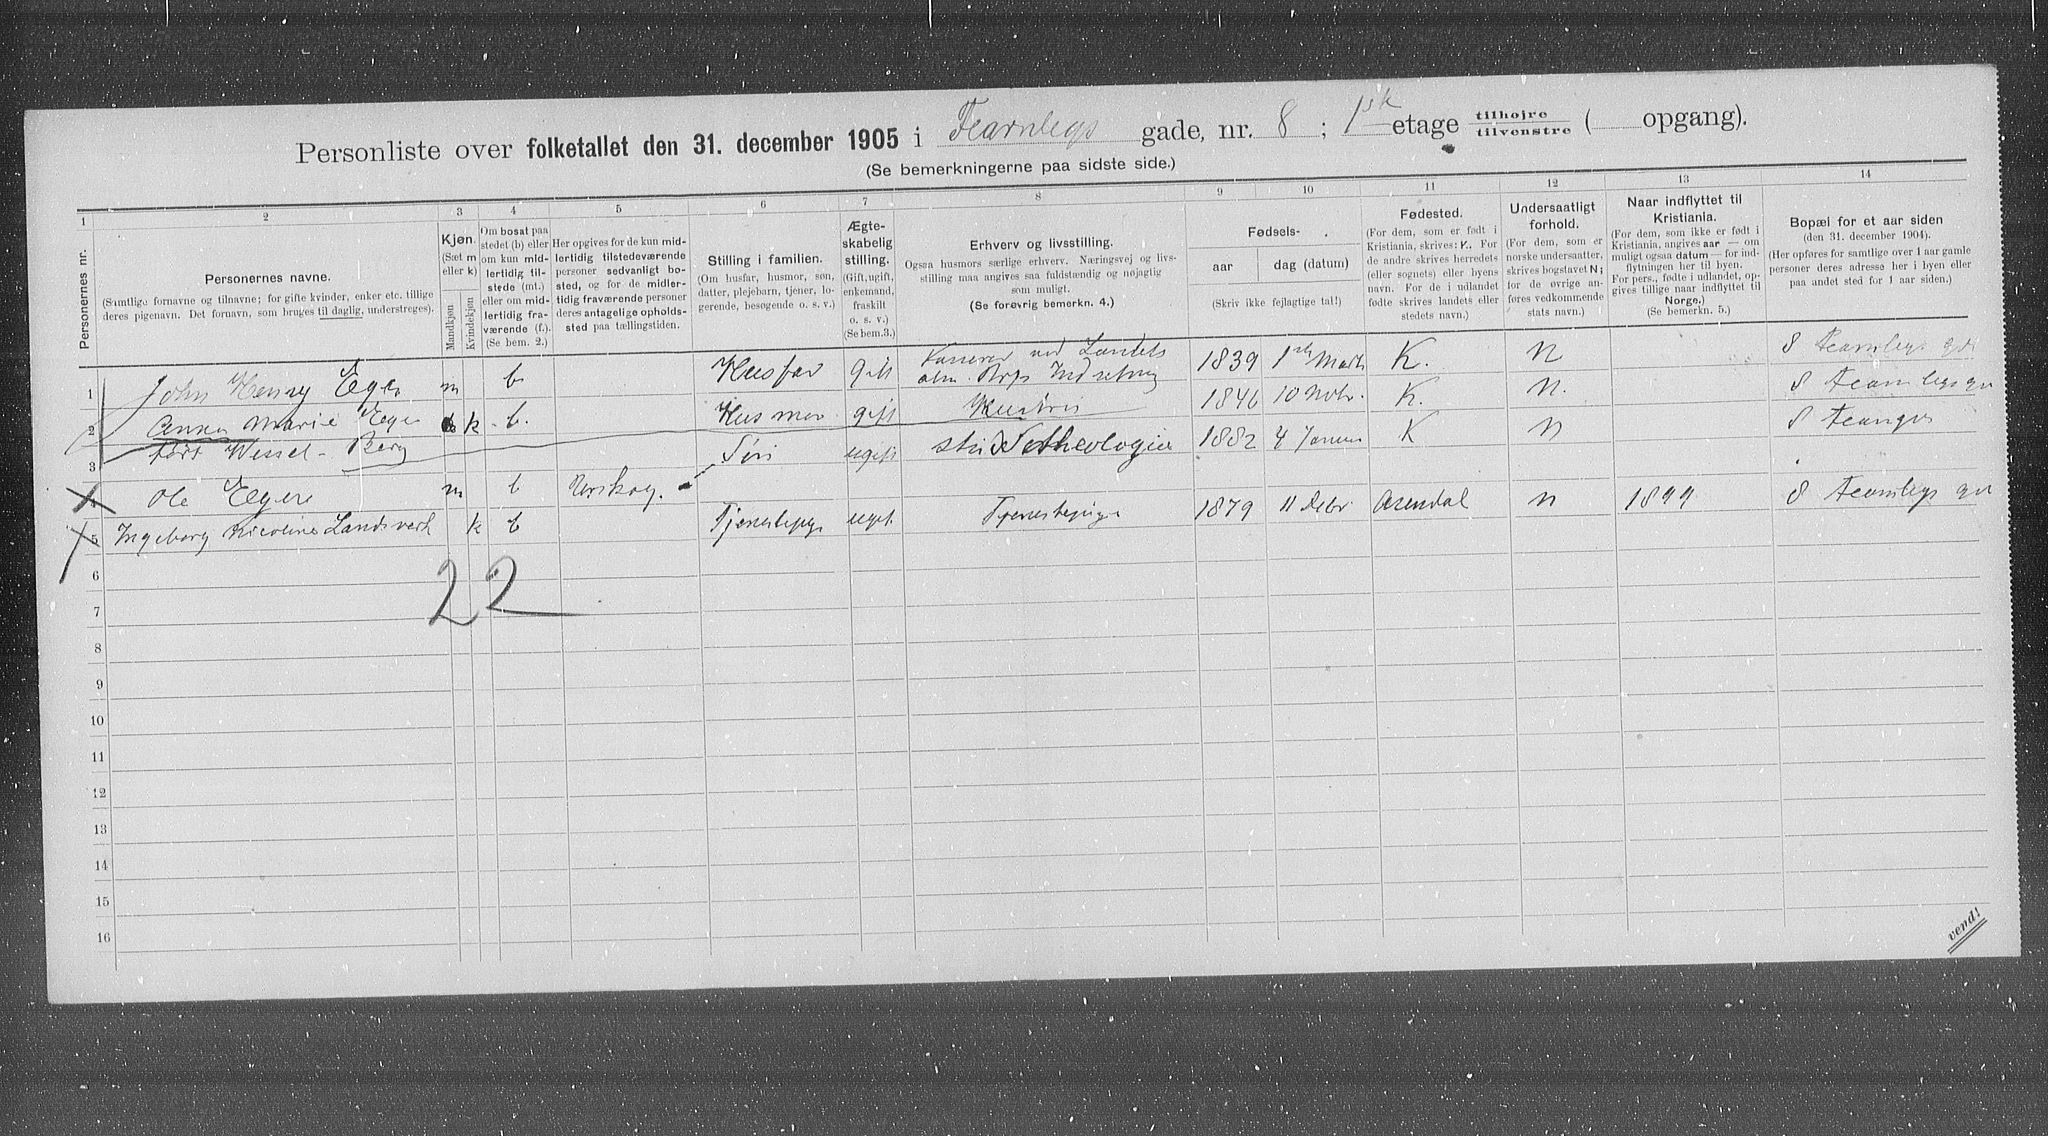 Personliste over folketallet den 31. december 1905 i Fearnleys gade, nr. 8 ; 1ste etage tilhøjre / tilvenstre ( opgang).
(Se bemerkningerne paa sidste side.)
1 2 3 4 5 6 7 8 9 10 11 12 13 14
Personernes nr.
Personernes navne.
(Samtlige fornavne og tilnavne; for gifte kvinder, enker etc. tillige
deres pigenavn. Det fornavn, som bruges til daglig, understreges).
Kjøn.
(Sæt m
eller k)
Mandkjøn
Kvindekjøn
Om bosat paa
stedet (b) eller
om kun midlertidig
tilstede (mt.)
eller om midlertidig
fraværende (f.).
(Se bem. 2.)
Her opgives for de kun midlertidig
tilstedeværende
personer sedvanligt bosted,
og for de midlertidig
fraværende personer
deres antagelige opholdssted
paa tællingstiden.
Stilling i familien.
(Om husfar, husmor, søn,
datter, plejebarn, tjener, logerende,
besøgende o. s. v.)
Ægteskabelig
stilling.
(Gift, ugift,
enkemand,
fraskilt
o. s. v.)
(Se bem. 3.)
Erhverv og livsstilling.
Ogsaa husmors særlige erhverv. Næringsvej og livsstilling
maa angives saa fuldstændig og nøjagtig
som muligt.
(Se forøvrig bemerkn. 4.)
Fødsels-
aar dag (datum)
(Skriv ikke fejlagtige tal!)
Fødested.
(For dem, som er født i
Kristiania, skrives: K. For
de andre skrives herredets
(eller sognets) eller byens
navn. For de i udlandet
fødte skrives landets eller
stedets navn.)
Undersaatligt
forhold.
(For dem, som er
norske undersaatter,
skrives bogstavet N;
for de øvrige anføres
vedkommende
stats navn.)
Naar indflyttet til
Kristiania.
(For dem, som ikke er født i
Kristiania, angives aar — om
muligt ogsaa datum — for indflytningen
her til byen.
For pers., fødte i udlandet, opgives
tillige naar indflyttet til
Norge.)
(Se bemerkn. 5.)
Bopæl for et aar siden
(den 31. december 1904).
(Her opføres for samtlige over 1 aar gamle
personer deres adresse her i byen eller
paa andet sted for 1 aar siden.)
1 John Henry Eger m b Husfar gift 1839 1ste Marts K. N 8 Fearnleys gd
2 Anna Marie Eger k b. Husmor gift Hustru 1846 10 Nobr. K. N. 8 Fearnleys gd
født Wessel-Berg
3 Ole Eger m b Urskog. Søn ugift stud theologie 1882 4 Januar K N 8
4
5 Ingeborg Nicoline Landsverk k b Tjenestepige ugift Tjenestepige 1879 11 Debr Arendal N 1899 8 Fearnleys gd
22
6
7
8
9
10
11
12
13
14
15
16
vend!